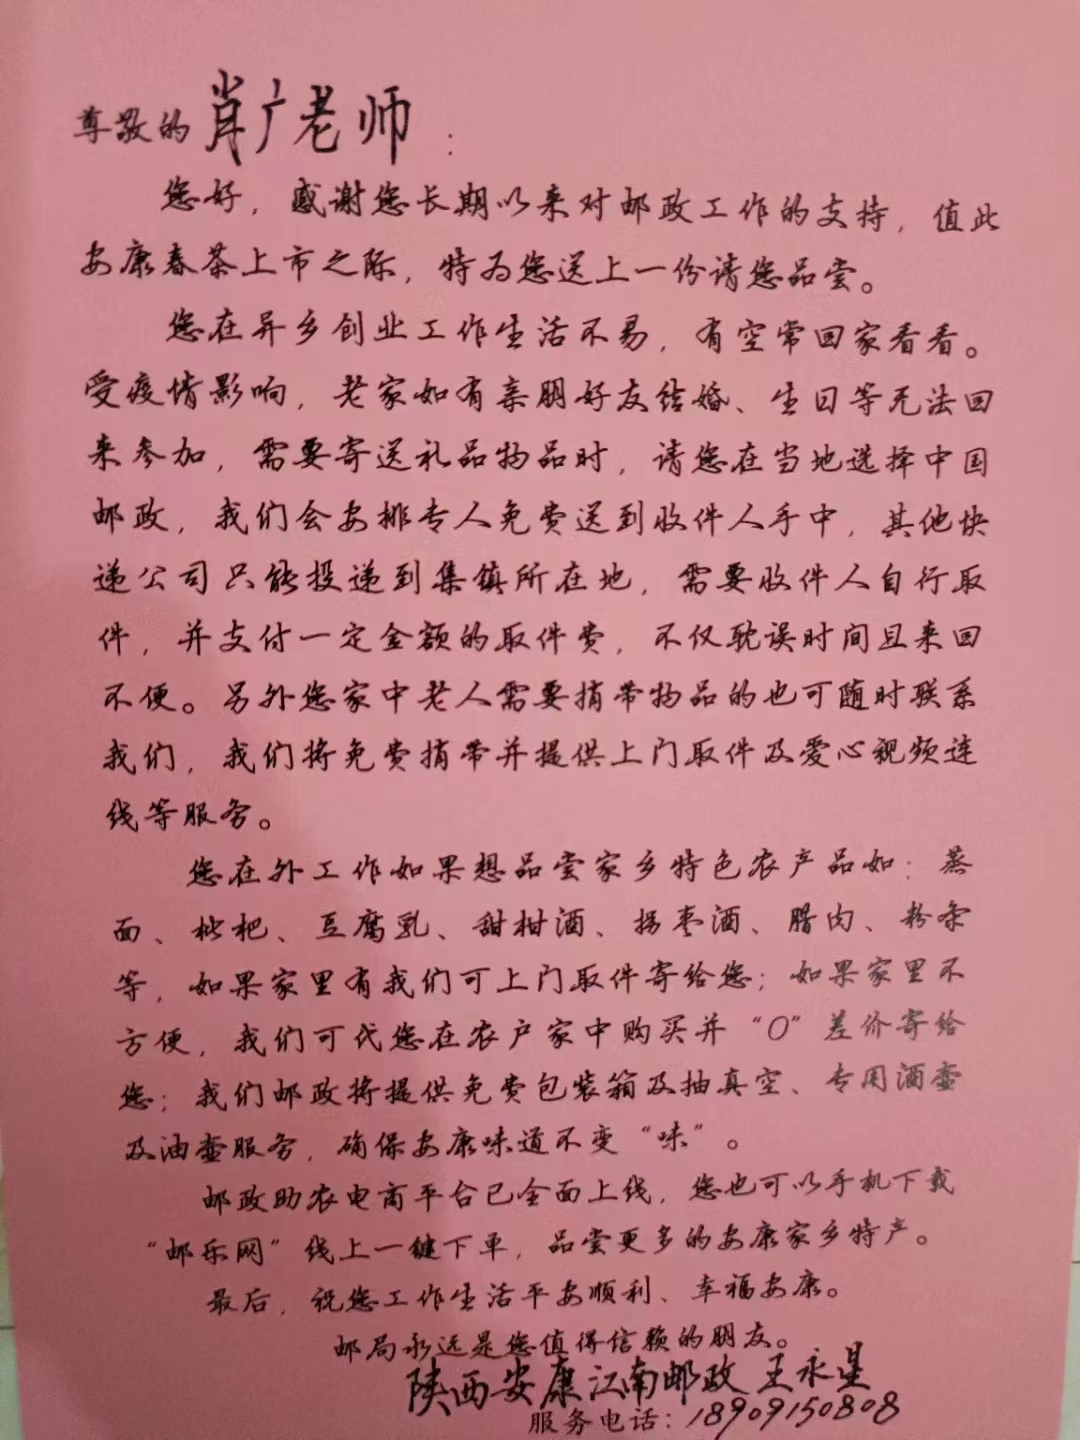 尊敬的肖广老师：
您好，感谢您长期以来对邮政工作的支持，值此
安康春茶上市之际，特为您送上一份请您品尝。
您在异乡创业工作生活不易，有空常回家看看。
受疫情影响，老家如有亲朋好友结婚、生日等无法回
来参加，需要寄送礼品物品时，请您在当地选择中国
邮政，我们会安排专人免费送到收件人手中，其他快
递公司只能投递到集镇所在地，需要收件人自行取
件，并支付一定金额的取件费，不仅耽误时间且来回
不便。另外您家中老人需要捎带物品的也可随时联系
我们，我们将免费捎带并提供上门取件及爱心视频连
线等服务。
您在外工作如果想品尝家乡特色农产品如：蒸
面、枇杷、豆腐乳、甜柑酒、拐枣酒、腊肉、粉条
等，如果家里有我们可上门取件寄给您；如果家里不
方便，我们可代您在农户家中购买并“0”差价寄给
您；我们邮政将提供免费包装箱及抽真空、专用酒壶
及油壶服务，确保安康味道不变“味”。
邮政助农电商平台已全面上线，您也可以手机下载
“邮乐网”线上一键下单，品尝更多的安康家乡特产。
最后，祝您工作生活平安顺利、幸福安康。
邮局永远是您值得信赖的朋友。
陕西安康江南邮政 王永星
服务电话：18909150808